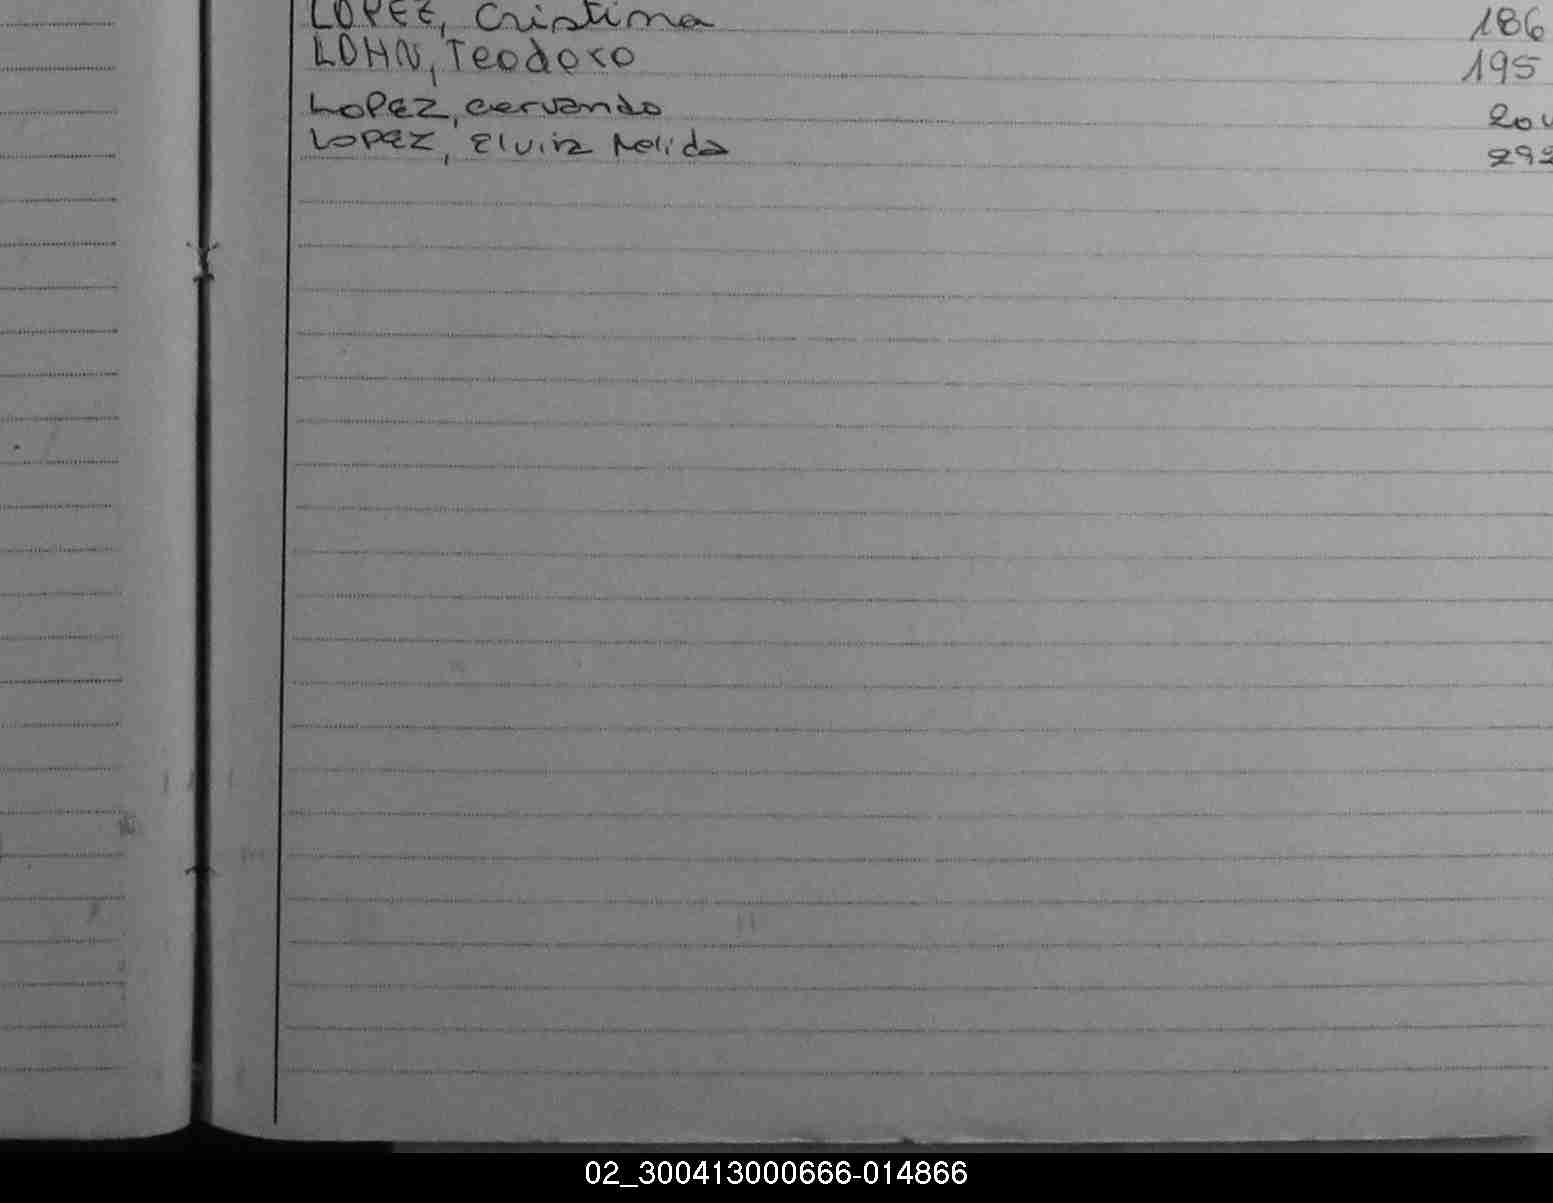 LOPEZ, Cristina 186
LOHN, Teodoro 195
LOPEZ, Cervando
LOPEZ, Elvira Nelida
02_300413000666-014866